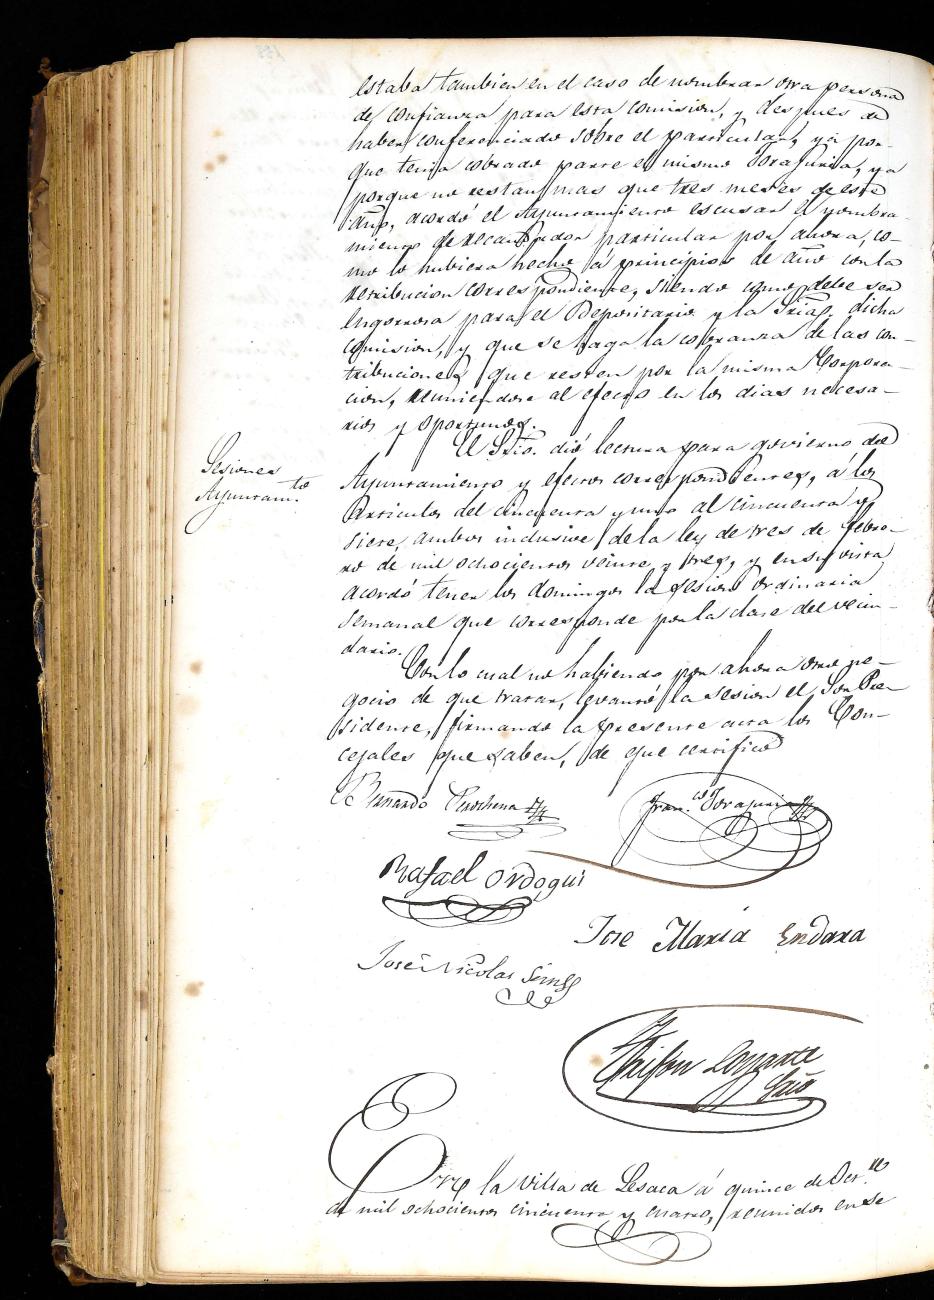 estaba tambien en el caso de nombrar otra persona
de confianza para esta comision, y despues de
haber conferenciado sobre el particular, ya por-
que tenia cobrado parte el mismo Torajuria, ya
porque no restan mas que tres meses de este
año, acordó el Ayuntamiento escusar el nombra-
miento de recaudador particular por ahora, co-
mo lo hubiera hecho á principios de año con la
retribucion correspondiente, siendo como debe ser
engorrosa para el Depositario y la Sria. dicha
comision, y que se haga la cobranza de las con-
tribuciones que resten por la misma Corpora-
cion, reuniendose al efecto en los dias necesa-
rios y oportunos.
Sesiones
Ayuntamto.
El Srio. dió lectura para govierno del
Ayuntamiento y efectos correspondientes, á los
Articulos del cincuenta y uno al cincuenta y
siete, ambos inclusive de la ley de tres de febre-
ro de mil ochocientos veinte y tres, y en su vista
acordó tener los domingos la sesion ordinaria
semanal que corresponde por la clase del vecin-
dario.
Con lo cual no habiendo por ahora otro ne-
gocio de que tratar, levantó la sesion el Sor Pre-
sidente, firmando la presente acta los Con-
cejales que saben, de que certifico
Bernardo
Franco. Torajuria
Rafael Ordoqui
Jose Maria Endara
José Nicolas
Srio
En la villa de Lesaca á quince de Octre.
de mil ochocientos cincuenta y cuatro, reunidos en se